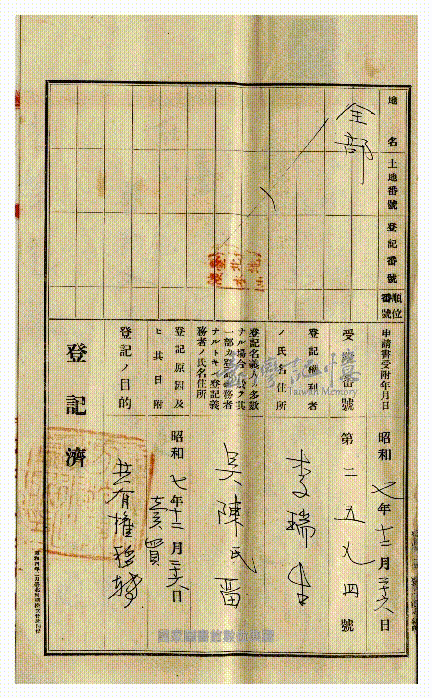 地名
土地番號
登記番號
順位番號
全部
申請書受附年月日
昭和七年十二月二十六日
受附番號
第二五九四號
登記權利者ノ氏名住所
李瑞
登記名義人多數ナル場合ニ於テ其一部カ登記義務者ナルトキ登記義務者ノ氏名住所
吳陳氏留
登記原因及ヒ其日附
昭和七年十二月二十六日
賣買
登記ノ目的
共有權移轉
登記濟
臺灣記憶
Taiwan Memory